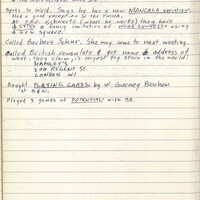 Spoke to Wald. Says he has a new MANCALA variation.
Had a good reception @ the TOUCH.
At F.A.O. Schwartz (where he works) they have
a fancy imitation of using
a 6x6 square.
Called Barbara Schur. She may come to next meeting.
Called British consulate & got name & address of
what, they claim, is largest toy store in the world:
HAMLEY'S
200 REGENT ST.
LONDON W1
Bought PLAYING CARDS by W. Gurney Benham
at B&N.
Played 3 games of POTENTIAL with